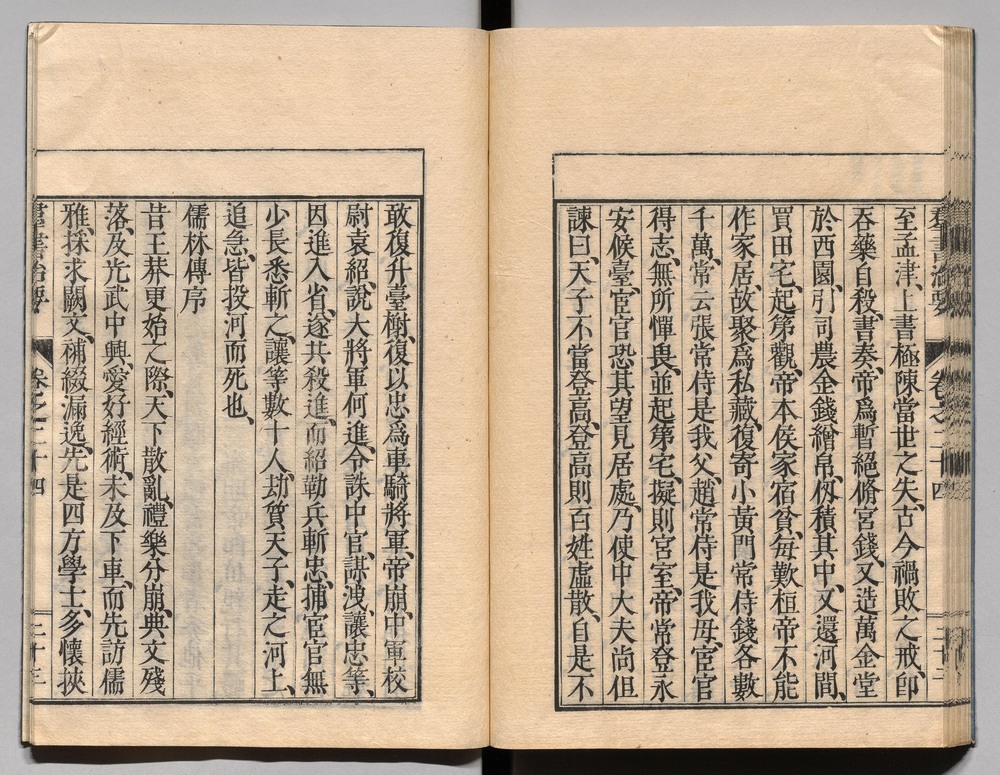 群書治要 卷之二十四 二十二
至孟津、上書極陳當世之失、古今禍敗之戒、卽
吞藥自殺、書奏、帝爲暫絕脩宮錢、又造萬金堂
於西園、引司農金錢繒帛、仞積其中、又還河間、
買田宅、起第觀、帝本侯家宿貧、每歎桓帝不能
作家居、故聚爲私藏、復寄小黃門常侍錢各數
千萬、常云張常侍是我父、趙常侍是我母、宦官
得志、無所憚畏、並起第宅、擬則宮室、帝常登永
安候臺、宦官恐其望見居處、乃使中大夫尚但
諫曰、天子不當登高、登高則百姓虛散、自是不
敢復升臺榭、復以忠爲車騎將軍、帝崩、中軍校
尉袁紹、說大將軍何進、令誅中官、謀洩、讓忠等、
因進入省、遂共殺進、而紹勒兵斬忠、捕宦官無
少長悉斬之、讓等數十人、劫質天子、走之河上、
追急、皆投河而死也、
儒林傳序
昔王莽更始之際、天下散亂、禮樂分崩、典文殘
落、及光武中興、愛好經術、未及下車、而先訪儒
雅、採求闕文、補綴漏逸、先是四方學士、多懷挾
群書治要 卷之二十四 二十三